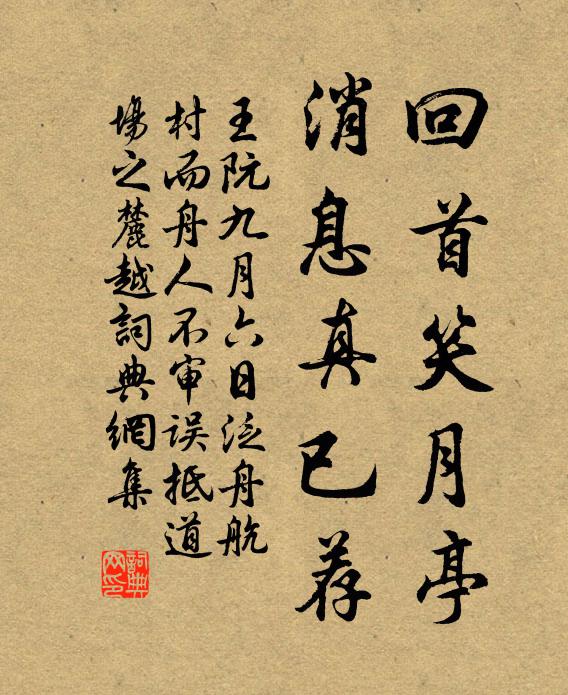 回首笑月亭
消息真已荐
王阮九月六日泛舟航
村而舟人不审误抵道
场之麓越詞典網集
詞典网印